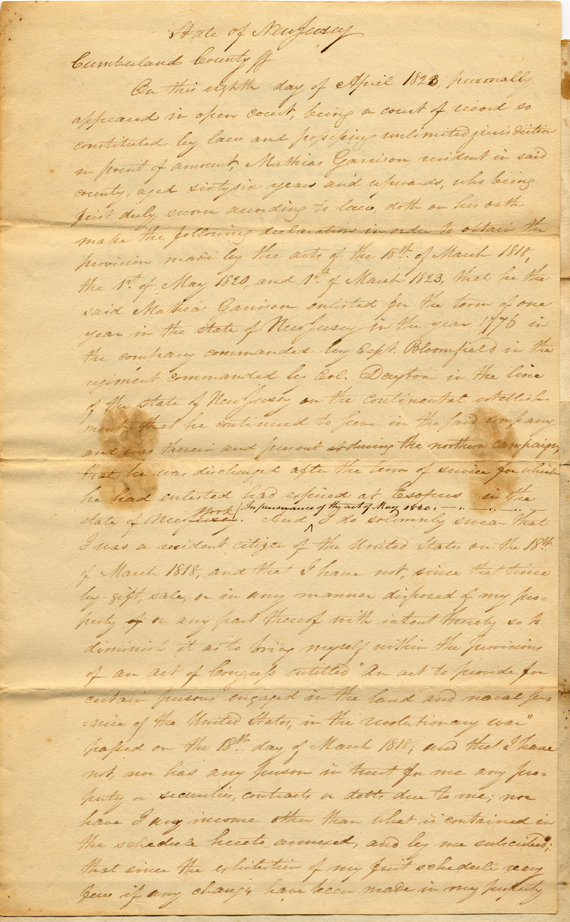 State of New Jersey
Cumberland County ss
On this eighth day of April 1823, personally
appeared in open court, being a court of record so
constituted by law and possessing unlimited jurisdiction
in point of amount, Mathias Garrison, resident in said
county, aged sixty six years and upwards, who being
first duly sworn according to law, doth on his oath
make the following declaration in order to obtain the
provision made by the acts of the 18th. of March 1818,
the 1st. of May 1820, and 1st. of March 1823, that he the
said Mathias Garrison enlisted for the term of one
year in the State of New Jersey in the year 1776 in
the company commanded by Capt. Bloomfield in the
regiment commanded by Col. Dayton in the line
of the State of New Jersey on the continental establish
ment, that he continued to serve in the said company
and was therein and present during the northern campaign,
that he was discharged after the term of service for which
he had enlisted had expired at Esopus in the
In pursuance of the act of May 1820
state of New York. And I do solemnly swear that
I was a resident citizen of the United States on the 18th.
of March 1818, and that I have not, since that time
by gift, sale, or in any manner disposed of my pro-
perty or any part thereof with intent thereby so to
diminish it as to bring myself within the provisions
of an act of Congress entitled "An act to provide for
certain persons engaged in the land and naval ser-
=vice of the United States, in the revolutionary war"
passed on the 18th. day of March 1818; and that I have
not, nor has any person in trust for me any pro-
perty or securities, contracts or debts due to me; nor
have I any income other than what is contained in
the schedule hereto annexed, and by me subscribed;
that since the exhibition of my first schedule very
few if any changes have been made in my property